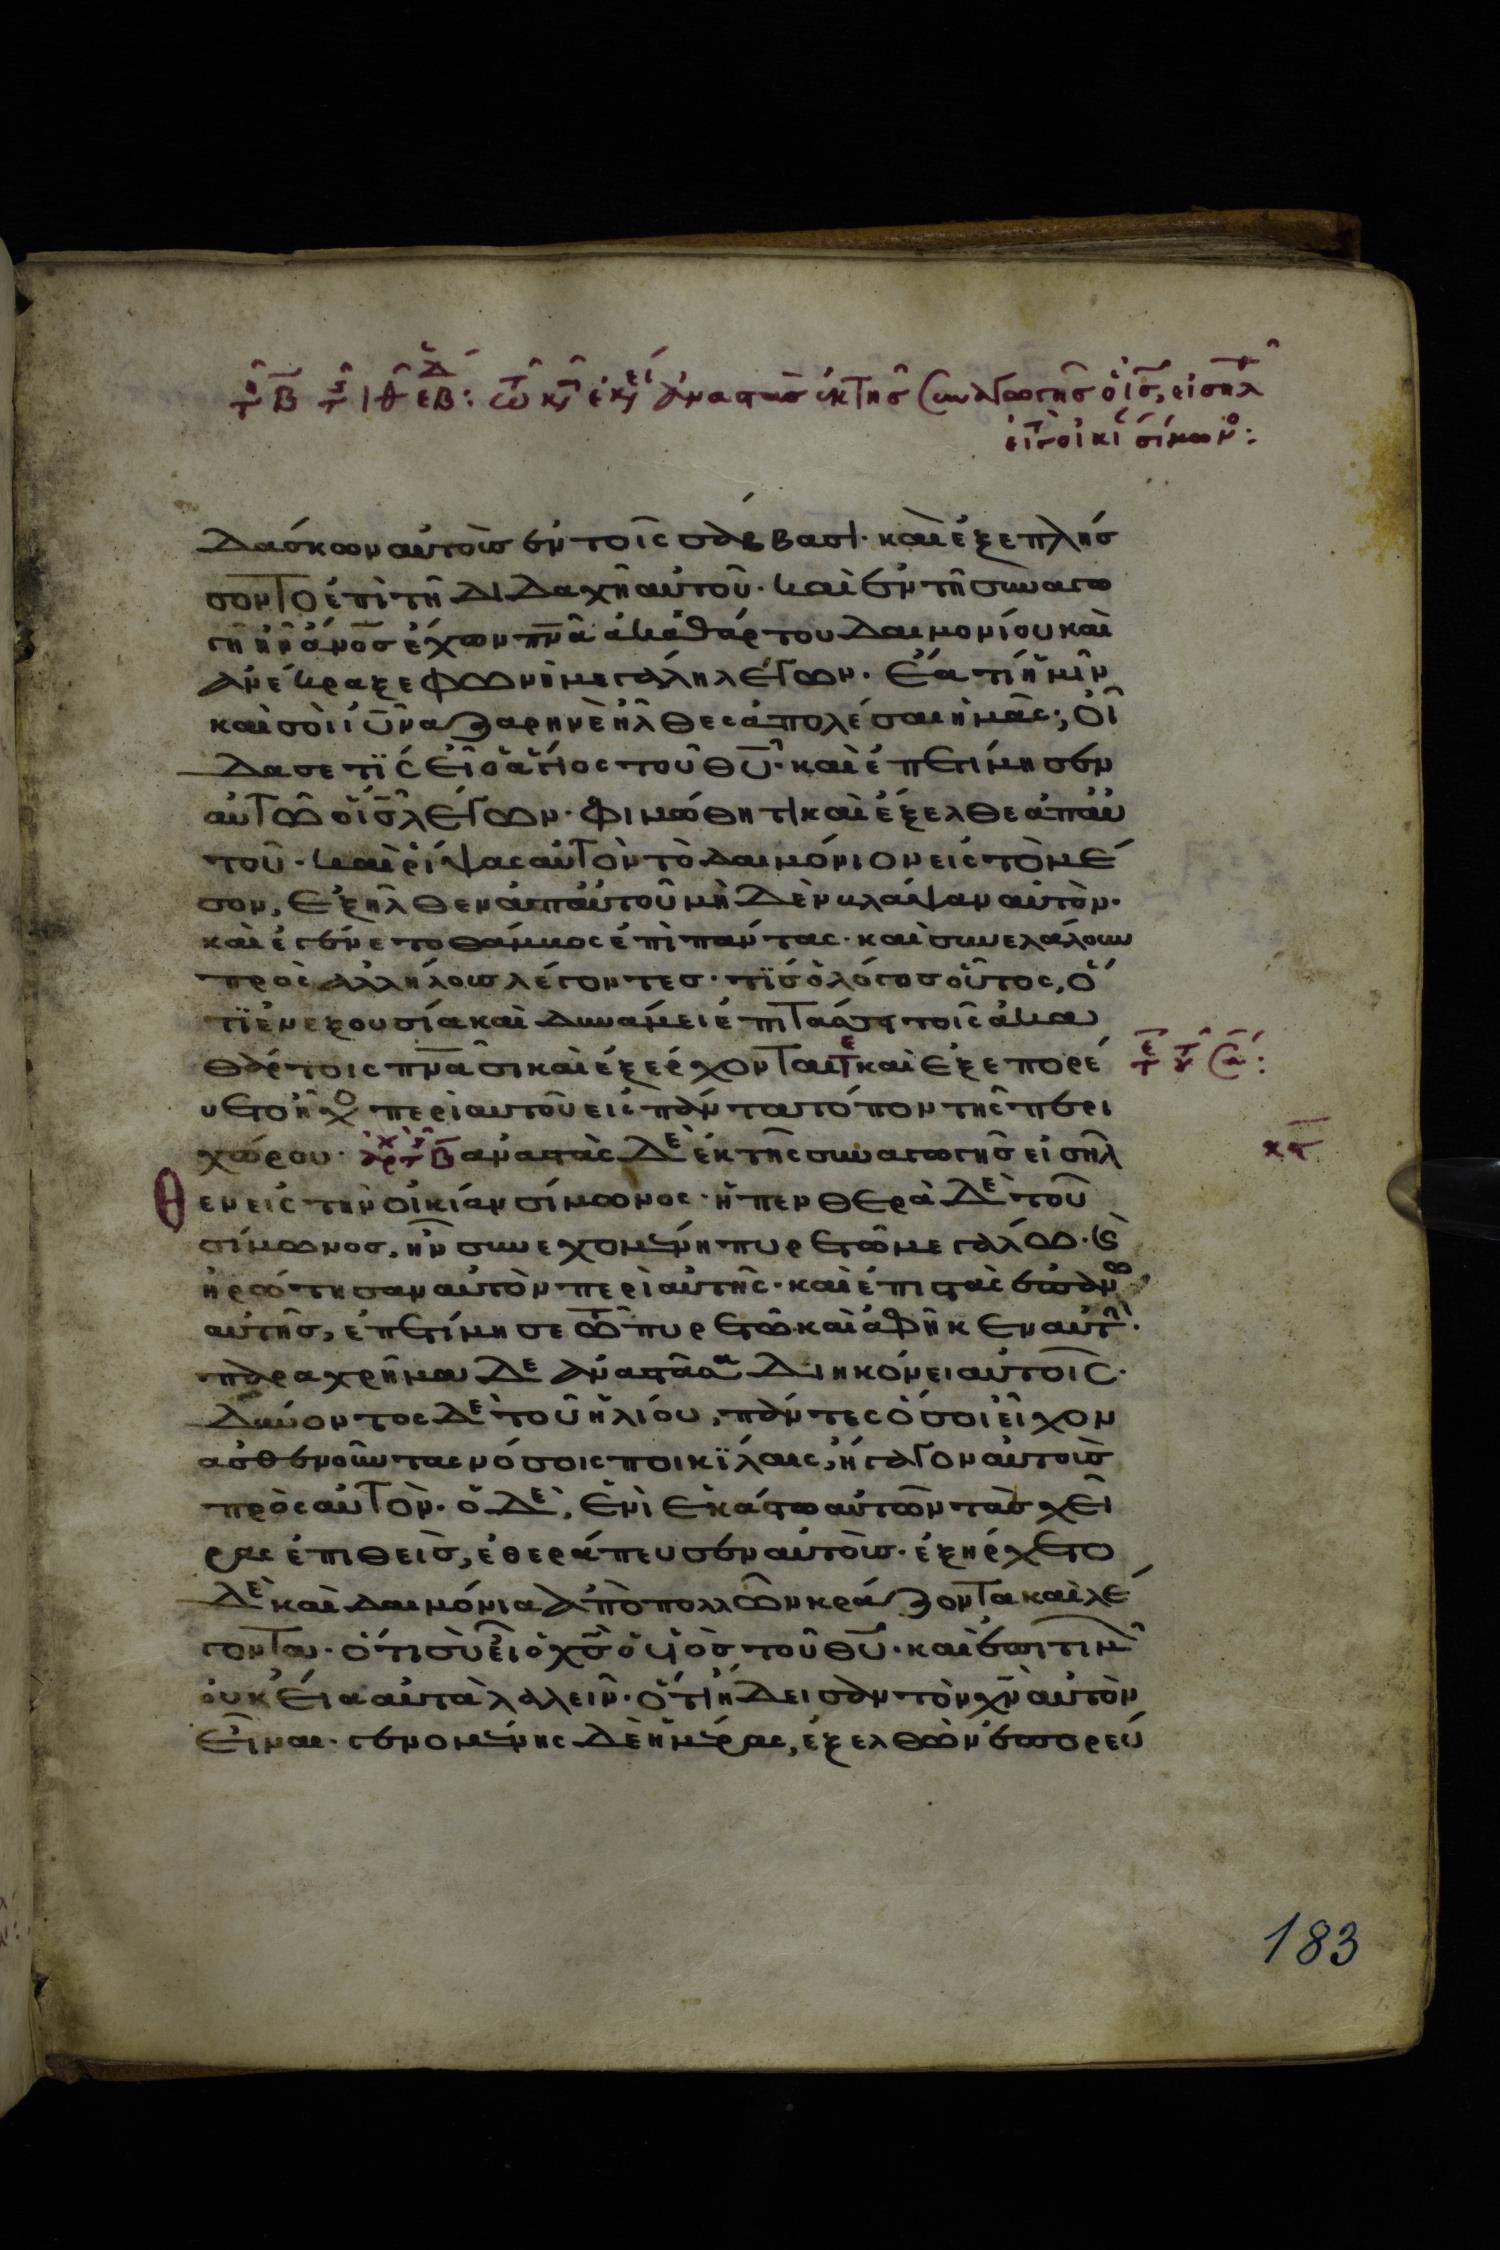 τῆ β τῆς ιθ ἑβδ: τῶ κῷ ἐκείνῳ ἀναστὰς ἐκ τῆς συναγωγῆς ὁ ἰς, εἰσῆλθ
εἰς τ οἰκί σίμωνο:
δάσκων αὐτοὺς ἐν τοῖς σάββασι· καὶ ἐξεπλήσ
σοντο ἐπὶ τῆ διδαχῆ αὐτοῦ· καὶ ἐν τῆ συναγω
γῆ ἦν ἄνος ἔχων πνα ἀκαθάρτου δαιμονίου καὶ
ἀνέκραξε φωνῆ μεγάλη λέγων· ἔα τί ἡμῖν
καὶ σοὶ ιυ ναζαρηνὲ ἦλθες ἀπολέσαι ἡμᾶς; οἶ
δα σε τίς εἶ ὁ ἅγιος τοῦ θυ· καὶ ἐπετίμησεν
αὐτῶ ὁ ις λέγων· φιμώθητι καὶ ἔξελθε ἀπ αὐ
τοῦ· καὶ ρίψας αὐτὸν τὸ δαιμόνιον εἰς τὸ μέ
σον, ἐξῆλθεν ἀπ αὐτοῦ μηδὲν βλάψαν αὐτόν·
καὶ ἐγένετο θάμβος ἐπὶ πάντας· καὶ συνελάλουν
πρὸς ἀλλήλους λέγοντες· τίς ὁ λόγος οὗτος, ὅ
τι ἐν ἐξουσία καὶ δυνάμει ἐπιτάσσει τοῖς ἀκα
θάρτοις πνασι καὶ ἐξέρχονται τε καὶ ἐξεπορεύ τε τ σα:
υετο ἦχο περὶ αὐτοῦ εἰς πάντα τόπον τῆς περι
χώρου· ἀρχ τῆ β ἀναστὰς δὲ ἐκ τῆς συναγωγῆς εἰσῆλ
θ εν εἰς τὴν οἰκίαν σίμωνος· ἡ πενθερὰ δὲ τοῦ
σίμωνος, ἦν συνεχομένη πυρετῶ μεγάλω· κ
ἠρώτησαν αὐτὸν περὶ αὐτῆς· καὶ ἐπιστὰς ἐπάνω
αὐτῆς, ἐπετίμησε τῶ πυρετῶ καὶ ἀφῆκεν αὐτ·
παραχρῆμα δὲ ἀναστᾶσα διηκόνει αὐτοῖς·
δύνοντος δὲ τοῦ ἡλίου, πάντες ὅσοι εἶχον
ἀσθενοῦντας νόσοις ποικίλαις, ἤγαγον αὐτοὺς
πρὸς αὐτόν· ὁ δὲ, ἑνὶ ἑκάστω αὐτῶν τὰς χεῖ
ρας ἐπιθεὶς, ἐθεράπευσεν αὐτούς· ἐξήρχετο
δὲ καὶ δαιμόνια ἀπὸ πολλῶν κράζοντα καὶ λέ
γοντα· ὅτι σὺ εἶ ὁ χς ὁ υἱὸς τοῦ θυ· καὶ ἐπιτιμ
οὐκ εἴα αὐτὰ λαλεῖν· ὅτι ἤδεισαν τὸν χν αὐτὸν
εἶναι· γενομένης δὲ ἡμέρας, ἐξελθὼν ἐπορεύ
183